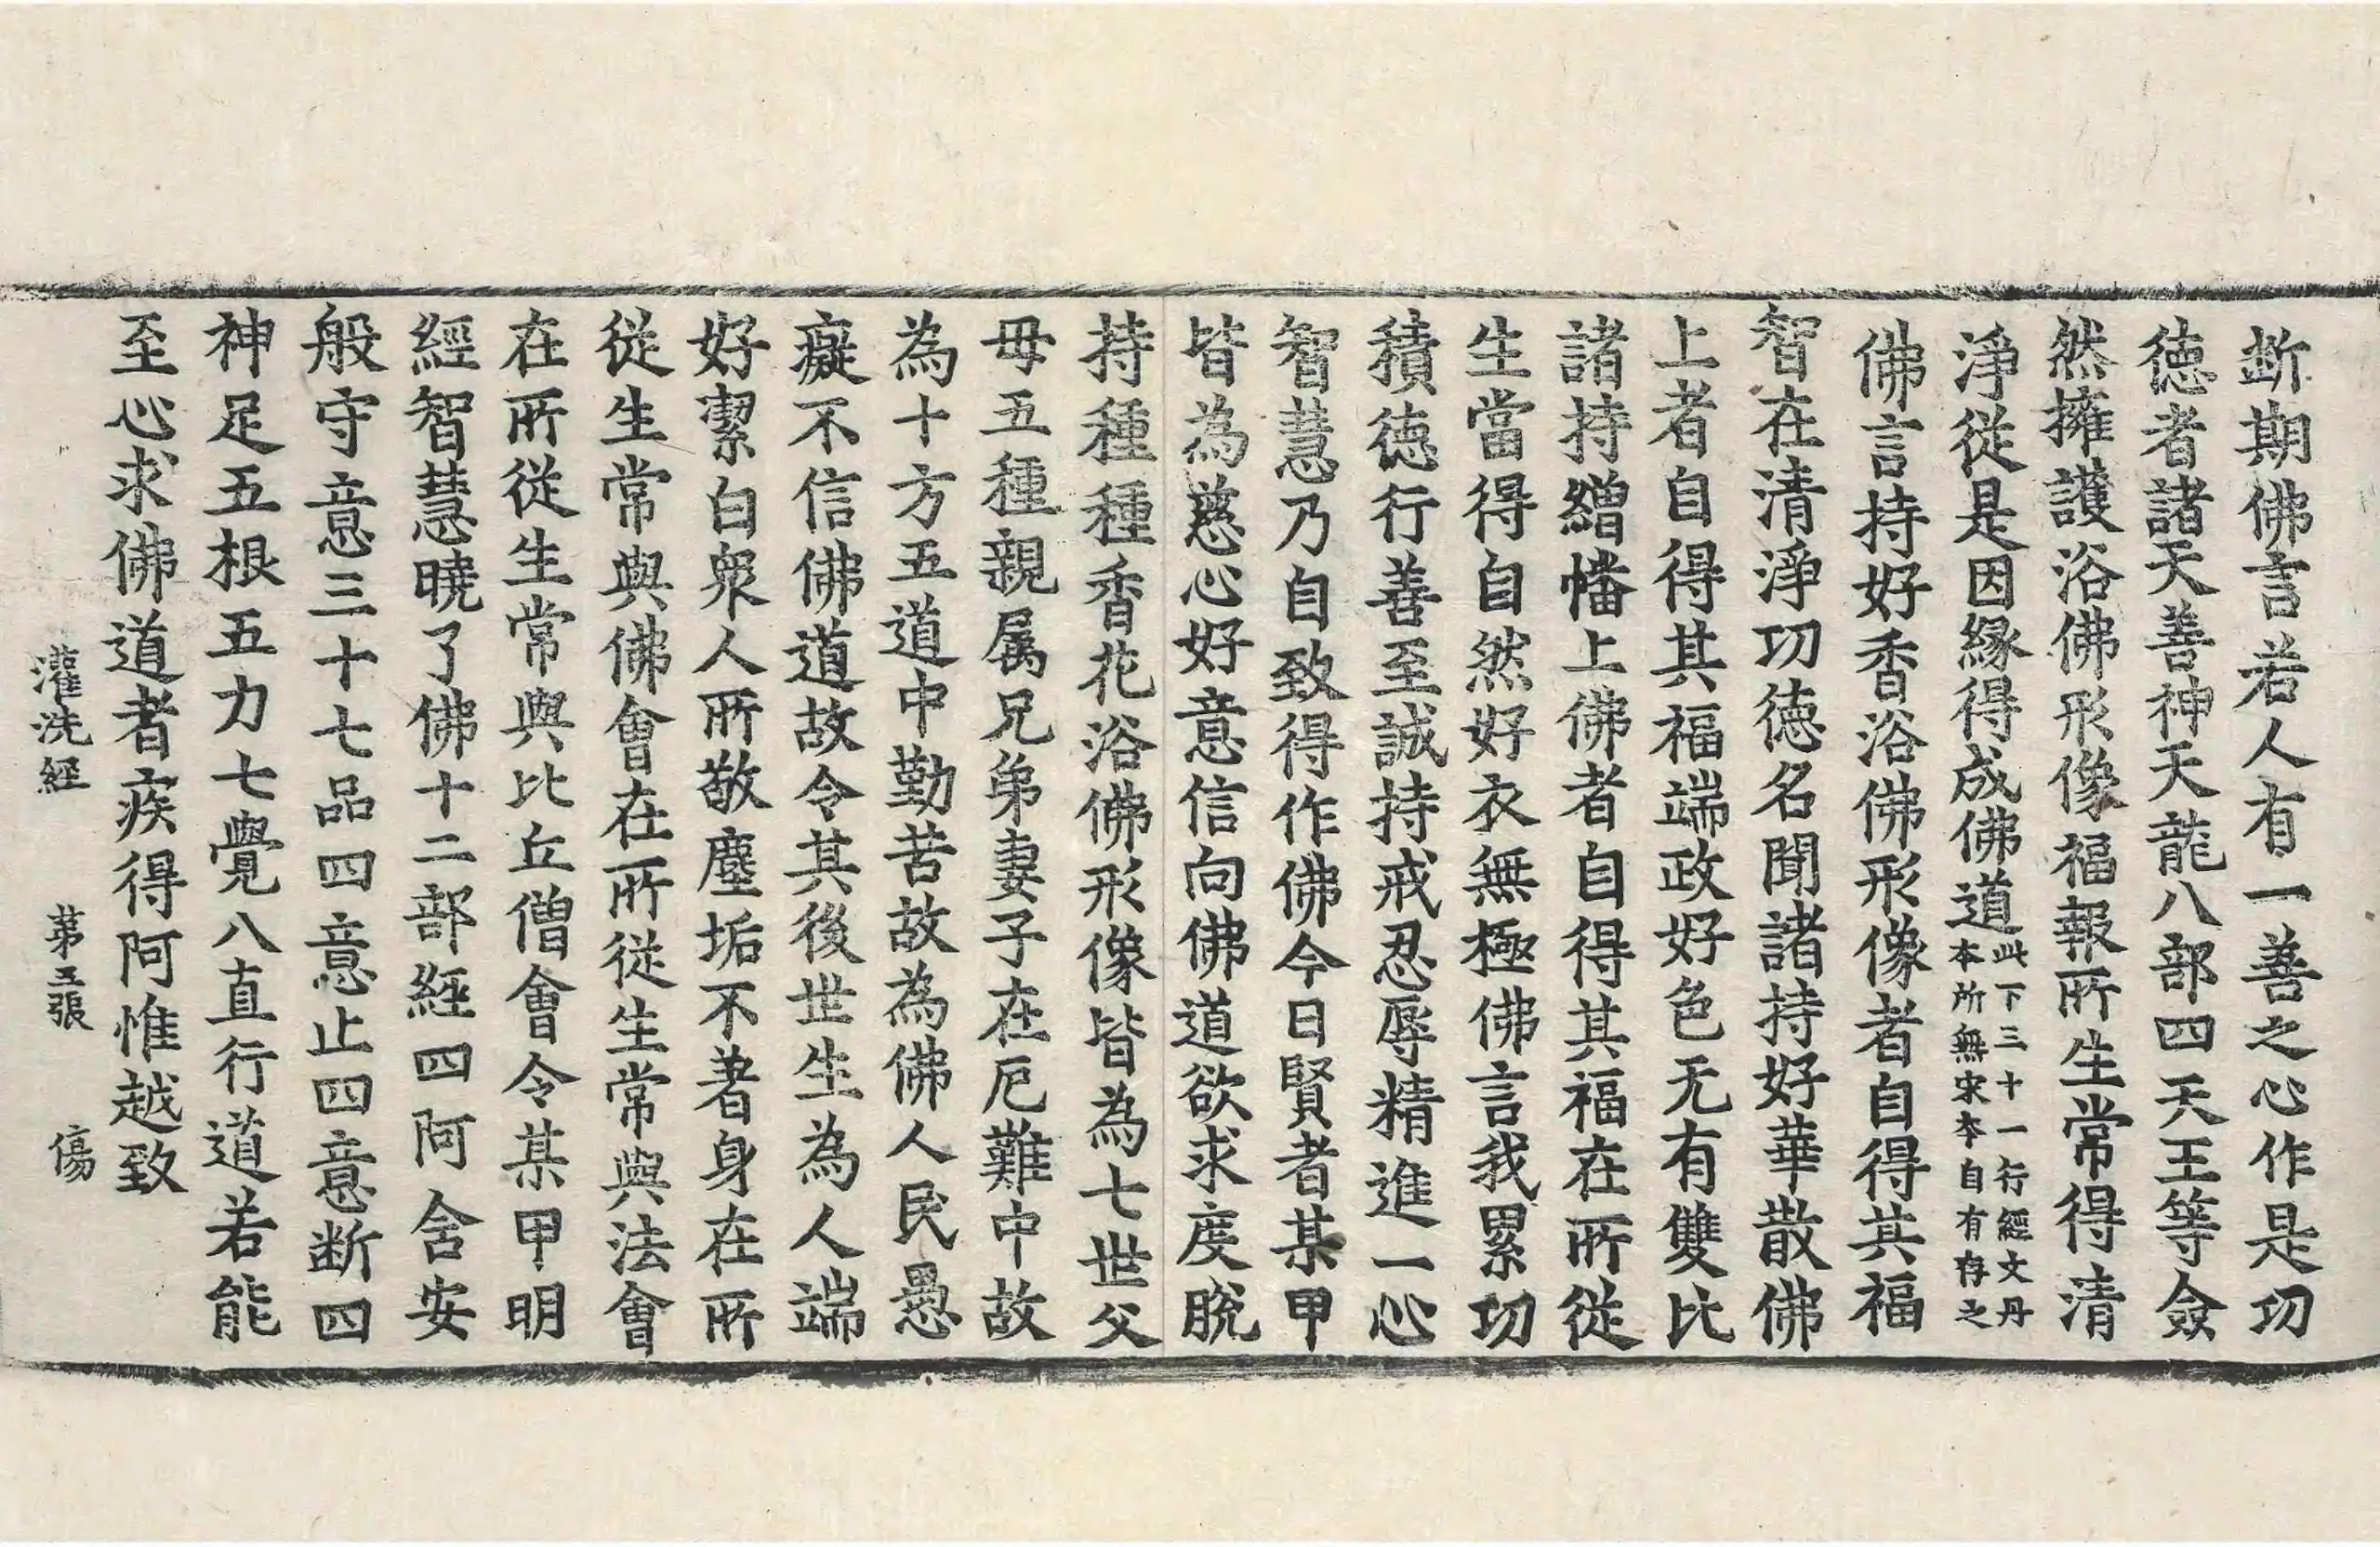 断期佛言若人有一善之心作是功
德者諸天善神天龍八部四天王等僉
然擁護浴佛形像福報所生常得清
淨從是因緣得成佛道此下三十一行經文丹
本所無宋本自有存之
佛言持好香浴佛形像者自得其福
智在清淨功德名聞諸持好華散佛
上者自得其福端政好色无有雙比
諸持繒幡上佛者自得其福在所從
生當得自然好衣無極佛言我累功
積德行善至誠持戒忍辱精進一心
智慧乃自致得作佛今日賢者某甲
皆為慈心好意信向佛道欲求度脫
持種種香花浴佛形像皆為七世父
母五種親属兄弟妻子在厄難中故
為十方五道中勤苦故為佛人民愚
癡不信佛道故令其後世生為人端
好潔白衆人所敬塵垢不著身在所
從生常與佛會在所從生常與法會
在所從生常與比丘僧會令某甲明
經智慧曉了佛十二部經四阿含安
般守意三十七品四意止四意断四
神足五根五力七覺八直行道若能
至心求佛道者疾得阿惟越致
灌洗經 第五張 傷